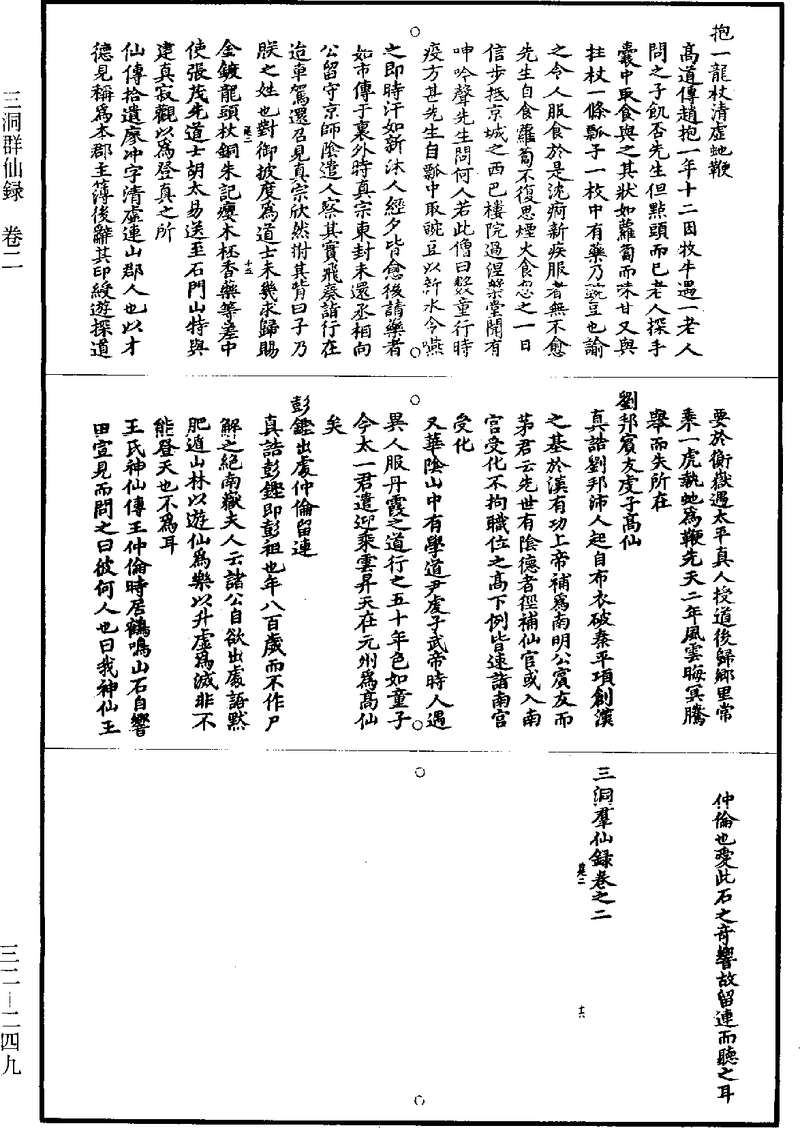 抱一龍杖清虛虵鞭
高道傳趙抱一年十二因牧牛遇一老人
問之子飢否先生但點頭而已老人探手
囊中取食與之其狀如蘿蔔而味甘又與
拄杖一條瓢子一枚中有藥乃豌豆也諭
之令人服食於是沈痾新疾服者無不愈
先生自食蘿蔔不復思煙火食忽之一日
信步抵京城之西巴樓院過涅槃堂聞有
呻吟聲先生問何人若此僧曰數童行時
疫方甚先生自瓢中取豌豆以新水令嚥
之即時汗如新沐人經夕皆愈後請藥者
如市傳于裏外時真宗東封未還丞相向
公留守京師陰遣人察其實飛奏詣行在
迨車駕還召見真宗欣然拊其背曰子乃
朕之姓也對御披度為道士未幾求歸賜
金鍍龍頭杖銅朱記癭木杯香藥等差中
使張茂先道士胡太易送至石門山特與
建真寂觀以為登真之所
仙傳拾遺廖冲字清虛連山郡人也以才
德見稱為本郡主簿後辭其印綬遊探道
要於衡嶽遇太平真人授道後歸鄉里常
乘一虎執虵為鞭先天二年風雲晦冥騰
舉而失所在
劉邦賓友虔子高仙
真誥劉邦沛人起自布衣破秦平項創漢
之基於漢有功上帝補為南明公賓友而
茅君云先世有陰德者徑補仙官或入南
宮受化不拘職位之高下例皆速詣南宮
受化
又華陰山中有學道尹虔子武帝時人遇
異人服丹霞之道行之五十年色如童子
今太一君遣迎乘雲昇天在元州為高仙
矣
彭鏗出處仲倫留連
真誥彭鏗即彭祖也年八百歲而不作尸
解之絕南嶽夫人云諸公自欲出處語默
肥遁山林以遊仙為樂以升虛為滅非不
能登天也不為耳
王氏神仙傳王仲倫時居鶴鳴山石自響
田宣見而問之曰彼何人也曰我神仙王
仲倫也愛此石之奇響故留連而聽之耳
三洞羣仙録卷之二
十六
三洞群仙録　卷二
三二—二四九